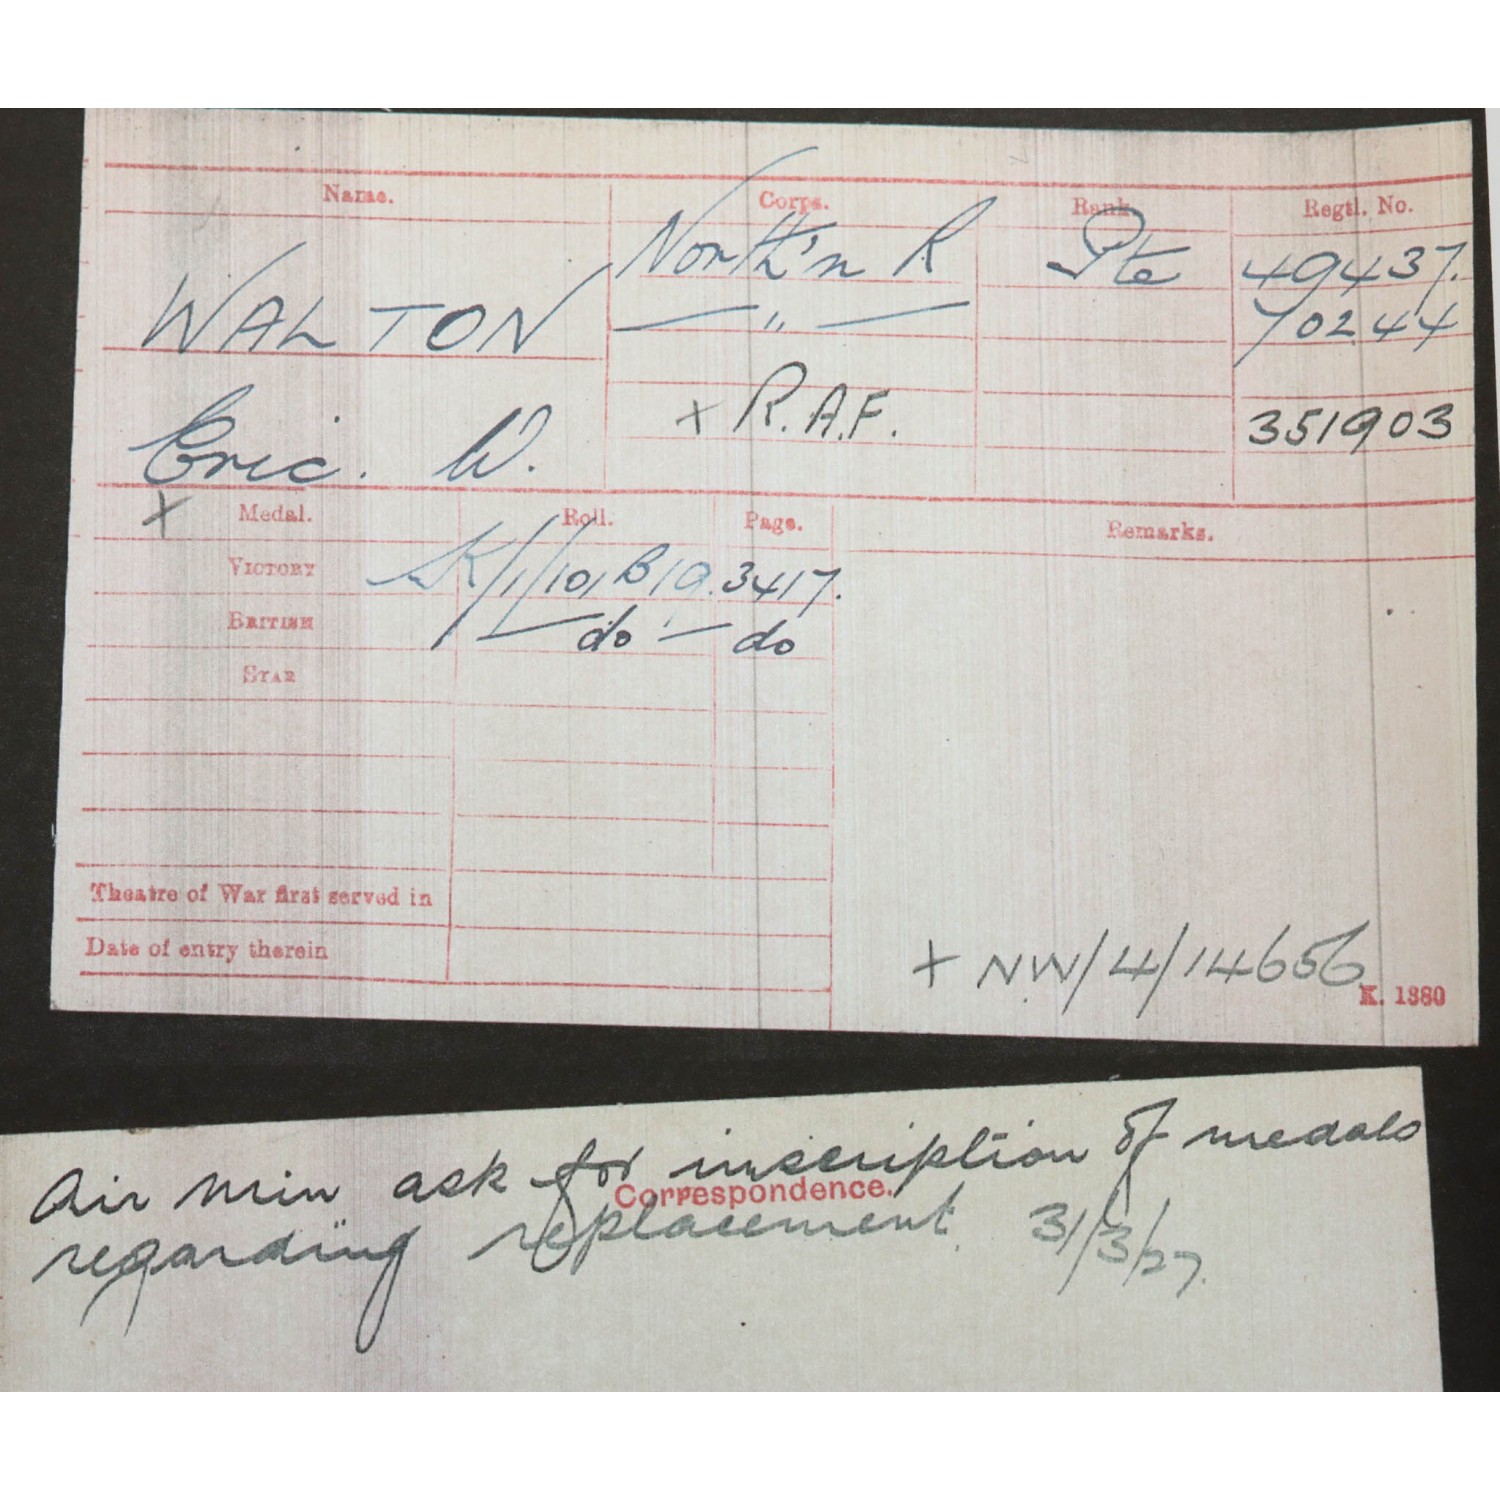 Name. Corps. Rank. Regtl. No.
WALTON North'n R Pte 49437.
— " — 70244
Eric. W. x R.A.F. 351903
x Medal. Roll. Page. Remarks.
VICTORY K/1/101 B19. 3417.
BRITISH — do — do
STAR
Theatre of War first served in
Date of entry therein
+ NW/4/14656
K. 1380
Air Min ask for inscription of medals
Correspondence.
regarding replacement. 31/3/27.